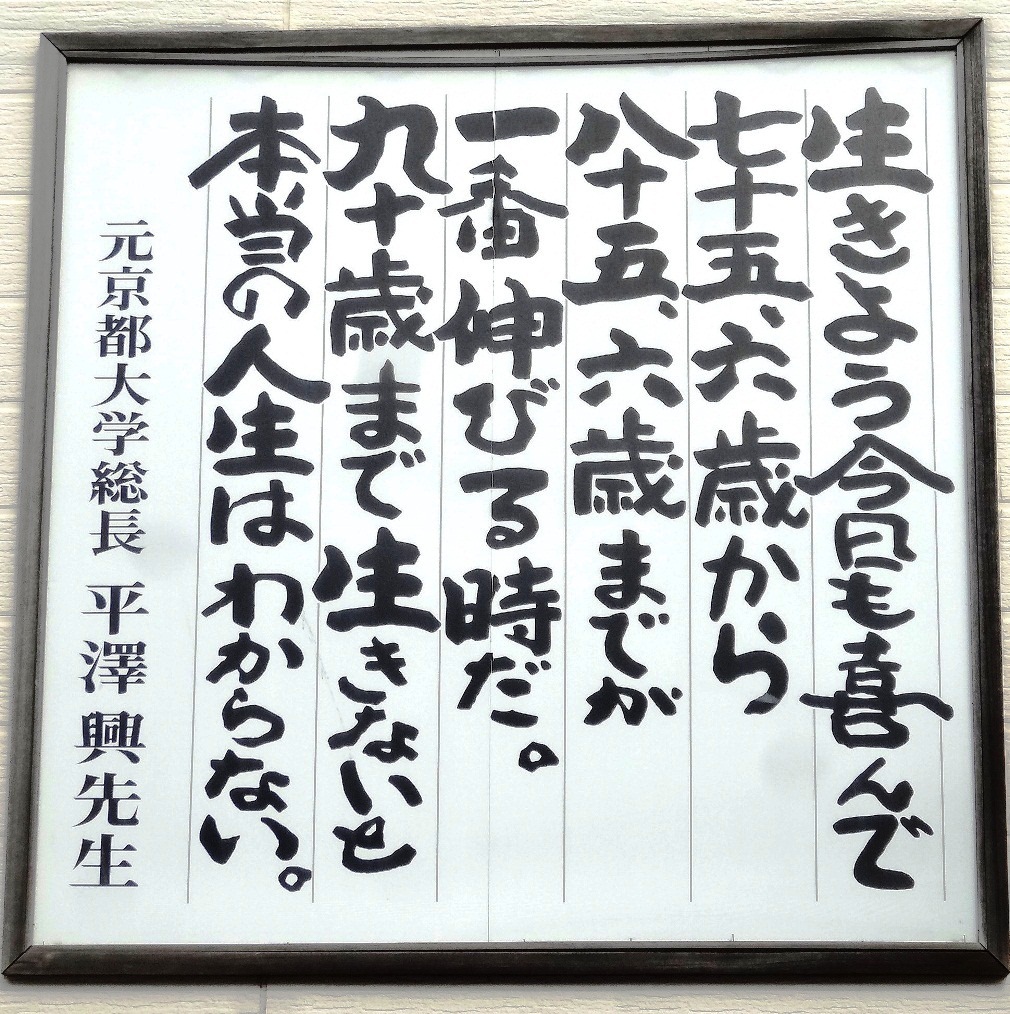 生きよう今日も喜んで
七十五、六歳から
八十五、六歳までが
一番伸びる時だ。
九十歳まで生きないと
本当の人生はわからない。
元京都大学総長 平澤興先生